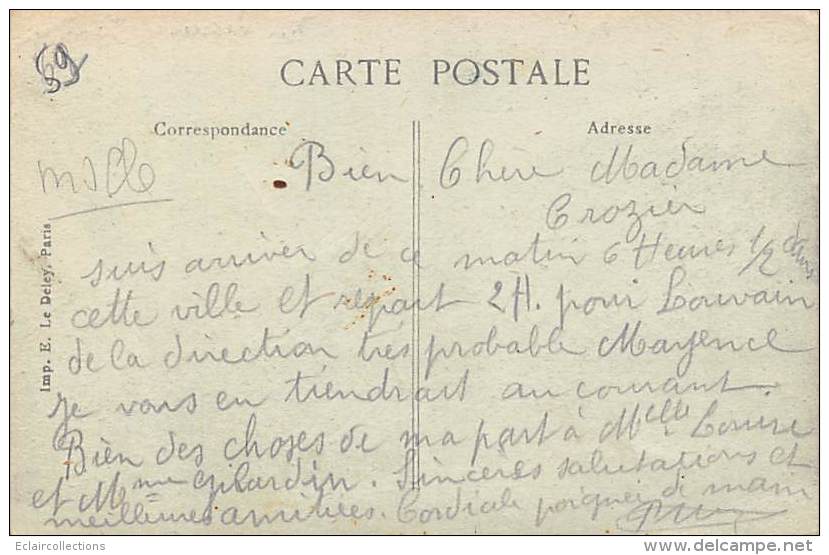 59
CARTE POSTALE
Correspondance
Adresse
Imp. E. Le Deley, Paris
Bien Chère Madame
Crozier
suis arriver de ce matin 6 Heures 1/2 dans
cette ville et repart 2 H. pour Louvain
de la direction très probable Mayence
je vous en tiendrait au courant.
Bien des choses de ma part à Melle Louise
et Mme Gilardin. Sincères salutations et
meilleures amitiées. Cordiale poignée de main
Eclaircollections
delcampe.net